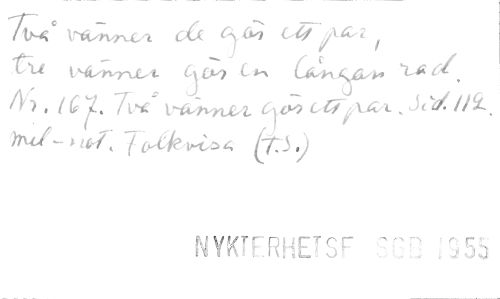 Två vänner de gös ett par,
tre vänner gös en långan rad.
Nr. 167. Två vänner gös ett par. Sid. 112.
mel-not. Folkvisa (T.S.)
NYKTERHETSF SGB 1955